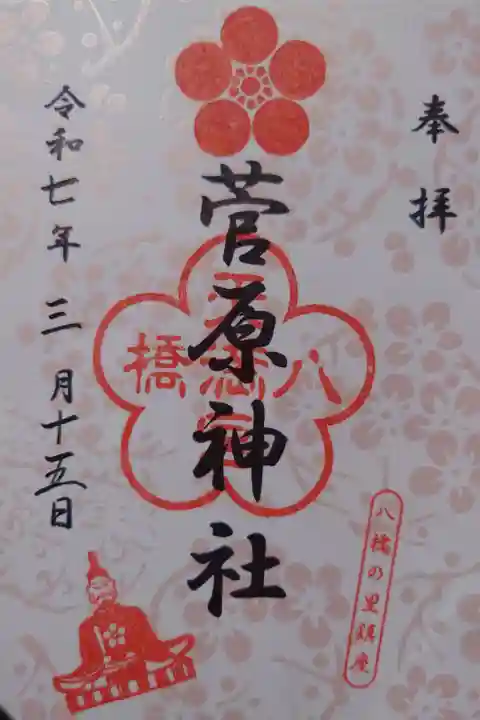 奉拝
菅原神社
八橋
令和七年 三月十五日
八橋の里鎮座